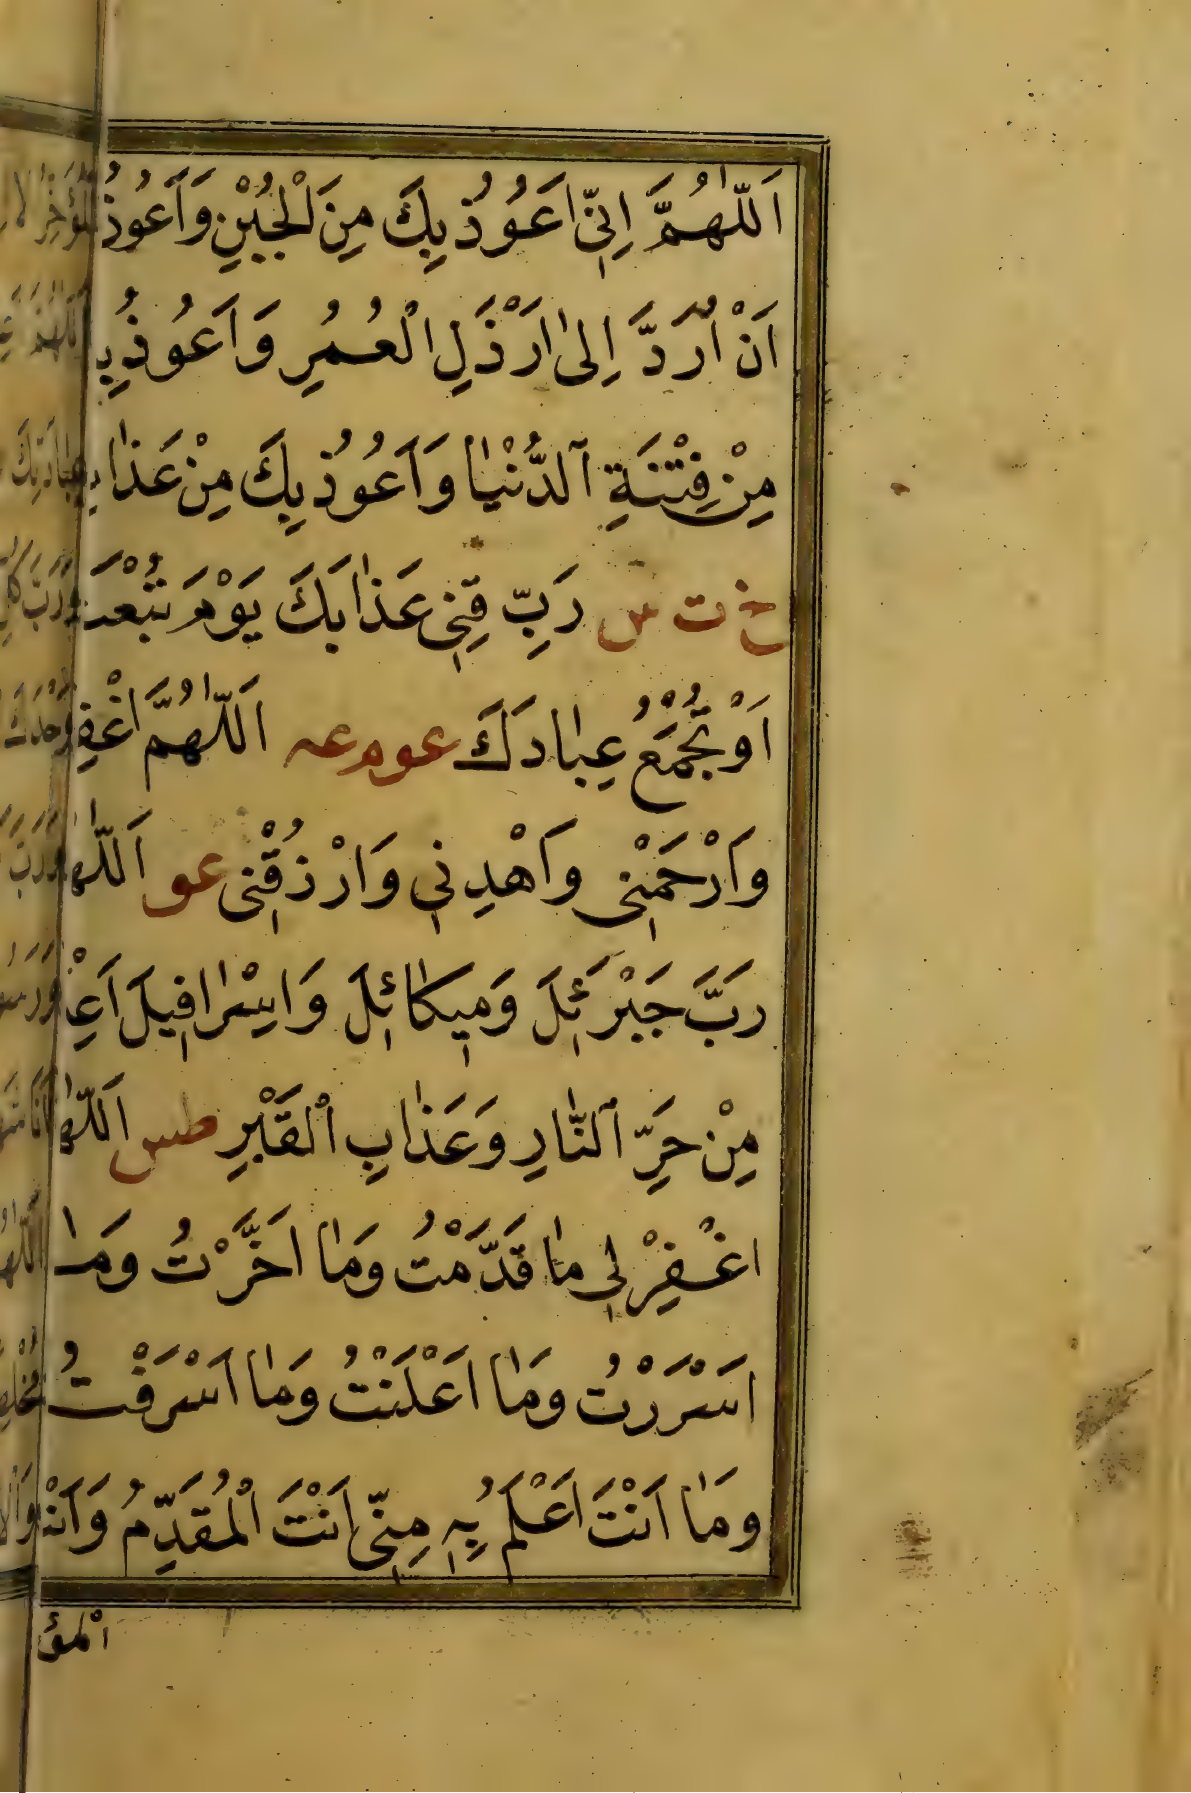 اَللّٰهُمَّ اِنِّي اَعُوُذُ بِكَ مِنَ الْجُبْنِ وَاَعُوُذُ
اَنْ اُرَدَّ اِلىٰ اَرْذَلِ الْعُمُرِ وَاَعُوُذُ بِ
مِنْ فِتْنَةِ الدُّنْيٰا وَاَعُوُذُ بِكَ مِنْ عَذٰابِ
خ ت س رَبِّ قِنِي عَذٰابَكَ يَوْمَ تَبْعَثُ
اَوْ تَجْمَعُ عِبٰادَكَ عو م عه اَللّٰهُمَّ اغْفِرْ
وَارْحَمْنِي وَاهْدِنِي وَارْزُقْنِي عو اَللّٰهُ
رَبَّ جَبْرَئِلَ وَمِيكٰائِلَ وَاِسْرٰافِيلَ اَعِذْ
مِنْ حَرِّ النّٰارِ وَعَذٰابِ الْقَبْرِ طس اَللّٰهُ
اغْفِرْ لِي مٰا قَدَّمْتُ وَمٰا اَخَّرْتُ وَمٰا
اَسْرَرْتُ وَمٰا اَعْلَنْتُ وَمٰا اَسْرَفْتُ
وَمٰا اَنْتَ اَعْلَمُ بِهِ مِنِّي اَنْتَ الْمُقَدِّمُ وَاَنْتَ
الْمؤ